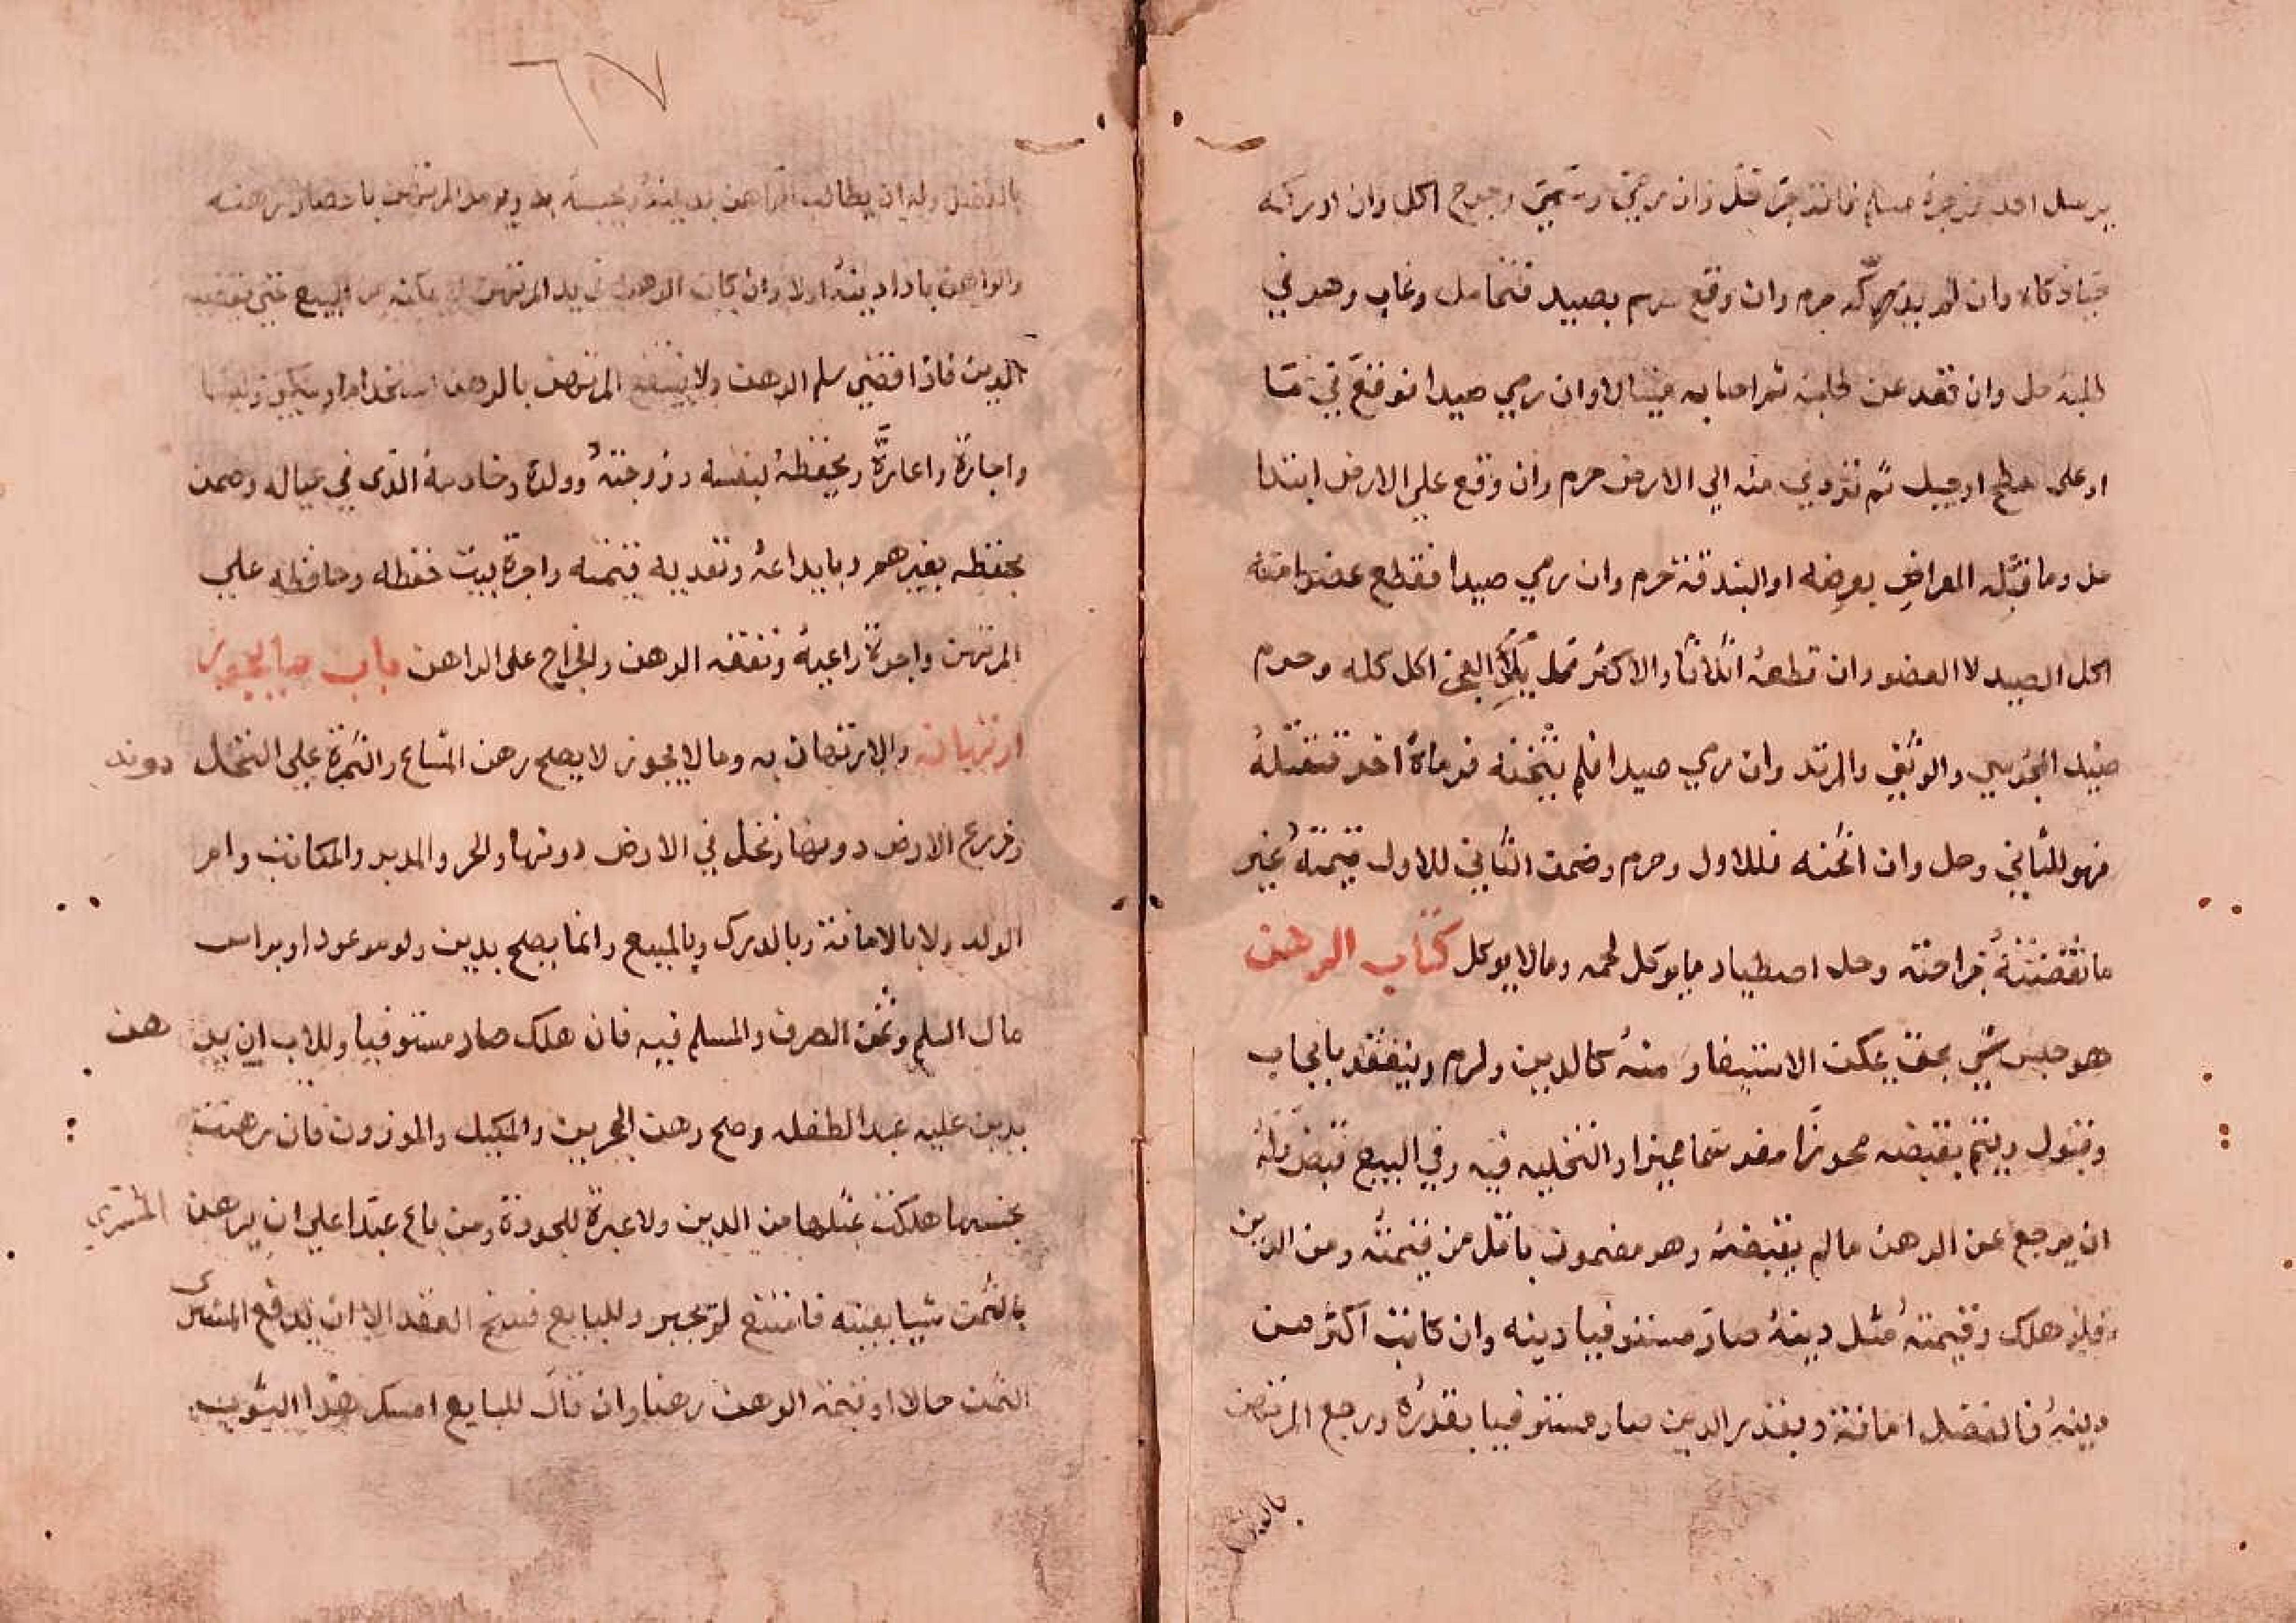 يرسل احد فزجره مسلم فانزجر قتل وان رمي وسمي وجرح اكل وان ادركه
حيا ذكاه وان لم يذكه حرم وان وقع سهم بصيد فتحامل وغاب وهو في
طلبه حل وان قعد عن طلبه ثم اصابه ميتا لا وان رمي صيدا فوقع في ما
او علي سطح او جبل ثم تردي منه الي الارض حرم وان وقع علي الارض ابتدا
حل وما قتله المعراض بعرضه او البندقة حرم وان رمي صيدا فقطع عضوا منه
اكل الصيد لا العضو وان قطعه اثلاثا والاكثر مما يلي العجز اكل كله وحرم
صيد المجوسي والوثني والمرتد وان رمي صيدا فلم يثخنه فرماه اخر فقتله
فهو للثاني وحل وان اثخنه فللاول وحرم وضمن الثاني للاول قيمته غير
ما نقصته جراحته وحل اصطياد ما يوكل لحمه وما لا يوكل كتاب الرهن
هو حبس شي بحق يمكن الاستيفاء منه كالدين ولزم وينعقد بايجاب
وقبول ويتم بقبضه محوزا مفرغا مميزا والتخليه فيه وفي البيع قبض وله
ان يرجع عن الرهن ما لم يقبضه وهو مضمون باقل من قيمته ومن الدين
فلو هلك وقيمته مثل دينه صار مستوفيا دينه وان كانت اكثر من
دينه فالفضل امانة وبقدر الدين صار مستوفيا بقدره ورجع المرتهن
بالفضل
٦٧
بالفضل وله ان يطالب الراهن بدينه ويحبسه به ويومر المرتهن باحضار رهنه
والراهن باداء دينه اولا وان كان الرهن في يد المرتهن لا يمكنه من البيع حتي يقضيه
الدين فاذا قضي سلم الرهن ولا ينتفع المرتهن بالرهن استخداما وسكني ولبسا
واجارة واعارة ويحفظه بنفسه وزوجته وولده وخادمه الذي في عياله وضمن
بحفظه بغيرهم وبايداعه وتعديه قيمته واجرة بيت حفظه وحافظه علي
المرتهن واجرة راعيه ونفقه الرهن والخراج علي الراهن باب ما يجوز
ارتهانه والارتهان به وما لا يجوز لا يصح رهن المشاع والثمرة علي النخل دونه
وزرع الارض دونها ونخل في الارض دونها والحر والمدبر والمكاتب وام
الولد ولا بالامانة وبالدرك وبالمبيع وانما يصح بدين ولو موعودا وبراس
مال السلم وثمن الصرف والمسلم فيه فان هلك صار مستوفيا وللاب ان ير هن
بدين عليه عبد الطفله وصح رهن الحجرين والمكيل والموزون فان رهنت
بجنسها هلكت بمثلها من الدين ولا عبرة للجودة ومن باع عبدا علي ان يرهن المشتري
بالثمن شيا بعينه فامتنع لم يجبر وللبايع فسخ العقد الا ان يدفع المشتري
الثمن حالا او قيمة الرهن رهنا وان قال للبايع امسك هذا الثوب